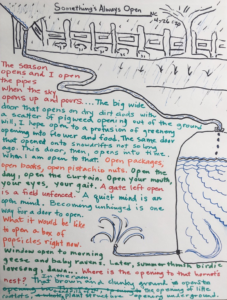 Something's Always Open
The season
opens and I open
the pipes
when the sky
opens up and pours.... The big wide
door that opens on dry dirt floods with
a scatter of pigweed opening out of the ground
will, I hope open to a profusion of greenery
opening into flower and food. The same door
that opened onto snowdrifts not so long
ago. Thus door, then, opens into time.
What can I open to that? Open packages,
open books, open pistachio nuts. Open the
day, open the curtain. Open your mouth,
your eyes, your gait. A gate left open
is a field unfenced. A quiet mind is an
open mind. Becoming unhinged is one
way for a door to open.
What it would be like
to open a box of
popsicles right now.
Window open to morning,
geese and baby ravens. Later, summer thrush birdie
lovesong, dawn... Where is the opening to that hornet's
nest? That brown and a shanky ground of
the opening of life
plant structure opening underground.